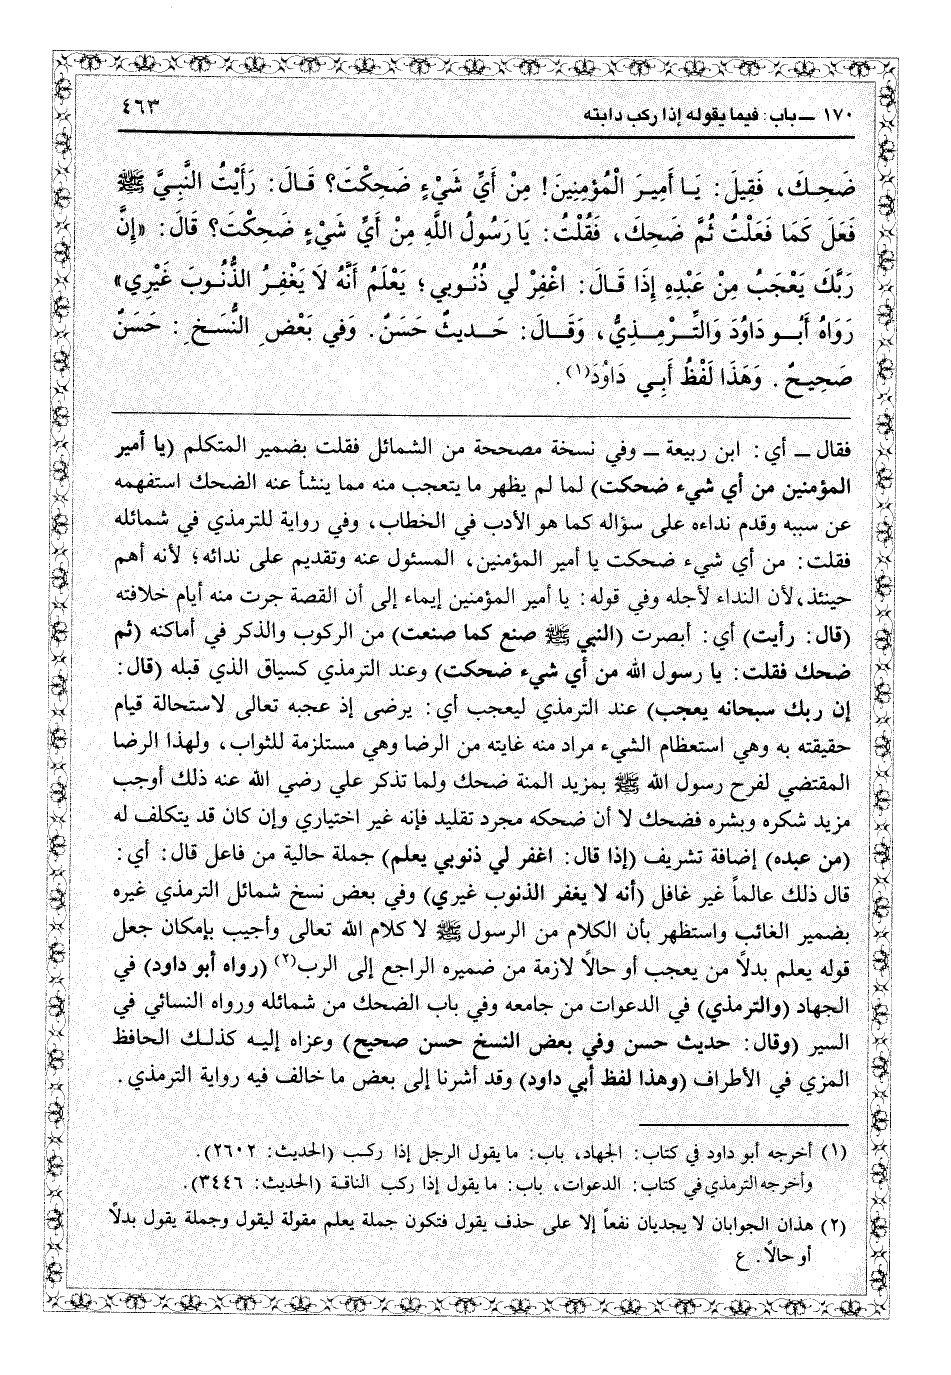 ١٧٠ ــ باب: فيما يقوله إذا ركب دابته
٤٦٣
ضَحِكَ، فَقِيلَ: يَا أَمِيرَ الْمُؤْمِنِينَ! مِنْ أَيِّ شَيْءٍ ضَحِكْتَ؟ قَالَ: رَأَيْتُ النَّبِيَّ ﷺ
فَعَلَ كَمَا فَعَلْتُ ثُمَّ ضَحِكَ، فَقُلْتُ: يَا رَسُولَ اللَّهِ مِنْ أَيِّ شَيْءٍ ضَحِكْتَ؟ قَالَ: «إِنَّ
رَبَّكَ يَعْجَبُ مِنْ عَبْدِهِ إِذَا قَالَ: اغْفِرْ لي ذُنُوبي؛ يَعْلَمُ أَنَّهُ لَا يَغْفِرُ الذُّنُوبَ غَيْرِي»
رَوَاهُ أَبُو دَاوُدَ وَالتِّرْمِذِيُّ، وَقَالَ: حَدِيثٌ حَسَنٌ. وَفي بَعْضِ النُّسَخِ: حَسَنٌ
صَحِيحٌ. وَهَذَا لَفْظُ أَبِي دَاوُدَ(١).
فقال ــ أي: ابن ربيعة ــ وفي نسخة مصححة من الشمائل فقلت بضمير المتكلم (يا أمير
المؤمنين من أي شيء ضحكت) لما لم يظهر ما يتعجب منه مما ينشأ عنه الضحك استفهمه
عن سببه وقدم نداءه على سؤاله كما هو الأدب في الخطاب، وفي رواية للترمذي في شمائله
فقلت: من أي شيء ضحكت يا أمير المؤمنين، المسئول عنه وتقديم على ندائه؛ لأنه أهم
حينئذ،لأن النداء لأجله وفي قوله: يا أمير المؤمنين إيماء إلى أن القصة جرت منه أيام خلافته
(قال: رأيت) أي: أبصرت (النبي ﷺ صنع كما صنعت) من الركوب والذكر في أماكنه (ثم
ضحك فقلت: يا رسول الله من أي شيء ضحكت) وعند الترمذي كسياق الذي قبله (قال:
إن ربك سبحانه يعجب) عند الترمذي ليعجب أي: يرضى إذ عجبه تعالى لاستحالة قيام
حقيقته به وهي استعظام الشيء مراد منه غايته من الرضا وهي مستلزمة للثواب، ولهذا الرضا
المقتضي لفرح رسول الله ﷺ بمزيد المنة ضحك ولما تذكر علي رضي الله عنه ذلك أوجب
مزيد شكره وبشره فضحك لا أن ضحكه مجرد تقليد فإنه غير اختياري وإن كان قد يتكلف له
(من عبده) إضافة تشريف (إذا قال: اغفر لي ذنوبي يعلم) جملة حالية من فاعل قال: أي:
قال ذلك عالماً غير غافل (أنه لا يغفر الذنوب غيري) وفي بعض نسخ شمائل الترمذي غيره
بضمير الغائب واستظهر بأن الكلام من الرسول ﷺ لا كلام الله تعالى وأجيب بإمكان جعل
قوله يعلم بدلاً من يعجب أو حالاً لازمة من ضميره الراجع إلى الرب(٢) (رواه أبو داود) في
الجهاد (والترمذي) في الدعوات من جامعه وفي باب الضحك من شمائله ورواه النسائي في
السير (وقال: حديث حسن وفي بعض النسخ حسن صحيح) وعزاه إليه كذلك الحافظ
المزي في الأطراف (وهذا لفظ أبي داود) وقد أشرنا إلى بعض ما خالف فيه رواية الترمذي.
(١) أخرجه أبو داود في كتاب: الجهاد، باب: ما يقول الرجل إذا ركب (الحديث: ٢٦٠٢).
وأخرجه الترمذي في كتاب: الدعوات، باب: ما يقول إذا ركب الناقة (الحديث: ٣٤٤٦).
(٢) هذان الجوابان لا يجديان نفعاً إلا على حذف يقول فتكون جملة يعلم مقولة ليقول وجملة يقول بدلاً
أو حالاً. ع